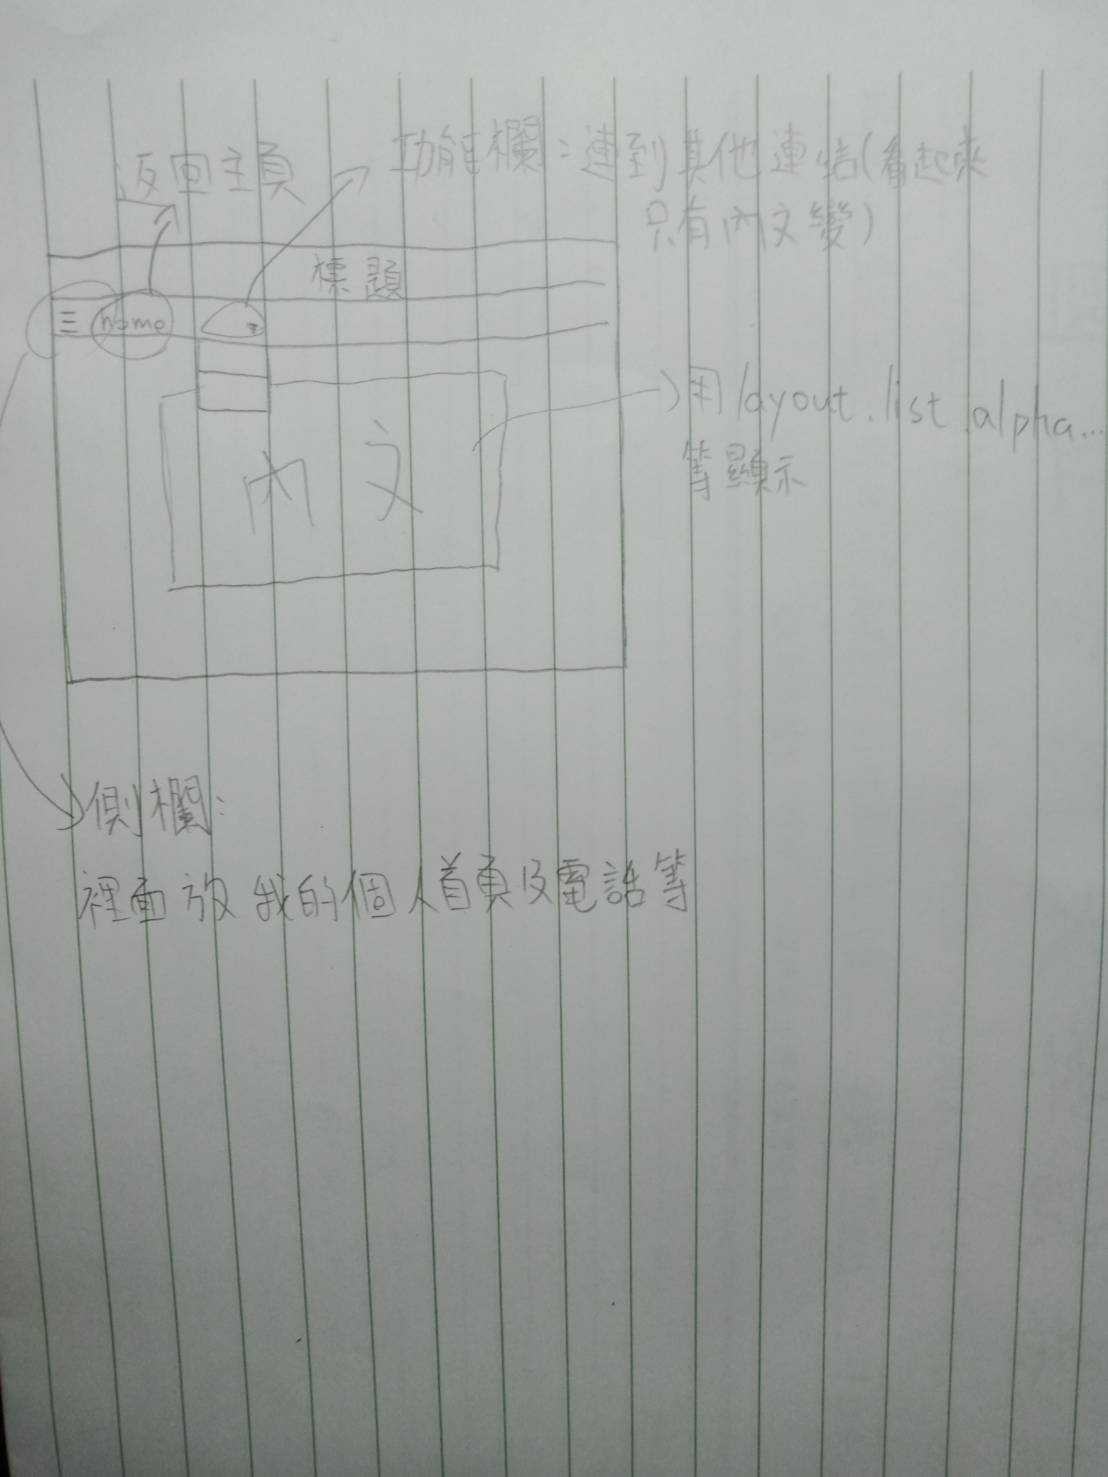 返回主頁
功能欄：連到其他連結(看起來
只有內文變)
標題
三 home
內文
用layout.list.alpha...
等顯示
側欄：
裡面放我的個人首頁及電話等